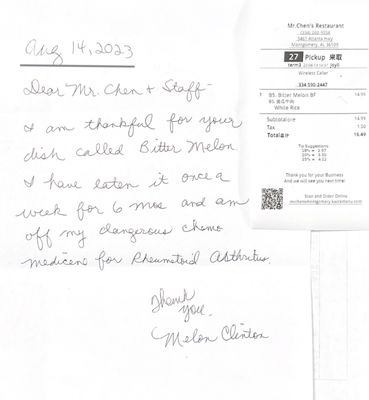 Aug 14, 2023
Dear Mr. Chen + Staff -
I am thankful for your
dish called Bitter Melon
I have eaten it once a
week for 6 mos and am
off my dangerous chemo
medicene for Rheumatoid Arthritus.
Thank
you.
Melon Clinton
Mr.Chen's Restaurant
3461 Atlanta Hwy
Montgomery, AL 36109
27 Pickup 来取
Wireless Caller
334 590-2447
B5. Bitter Melon BF 14.99
White Rice
Subtotal 14.99
Tax 1.50
Total 16.49
Tip Suggestions
Thank you for your Business
And we will see you next time!
Scan and Order Online